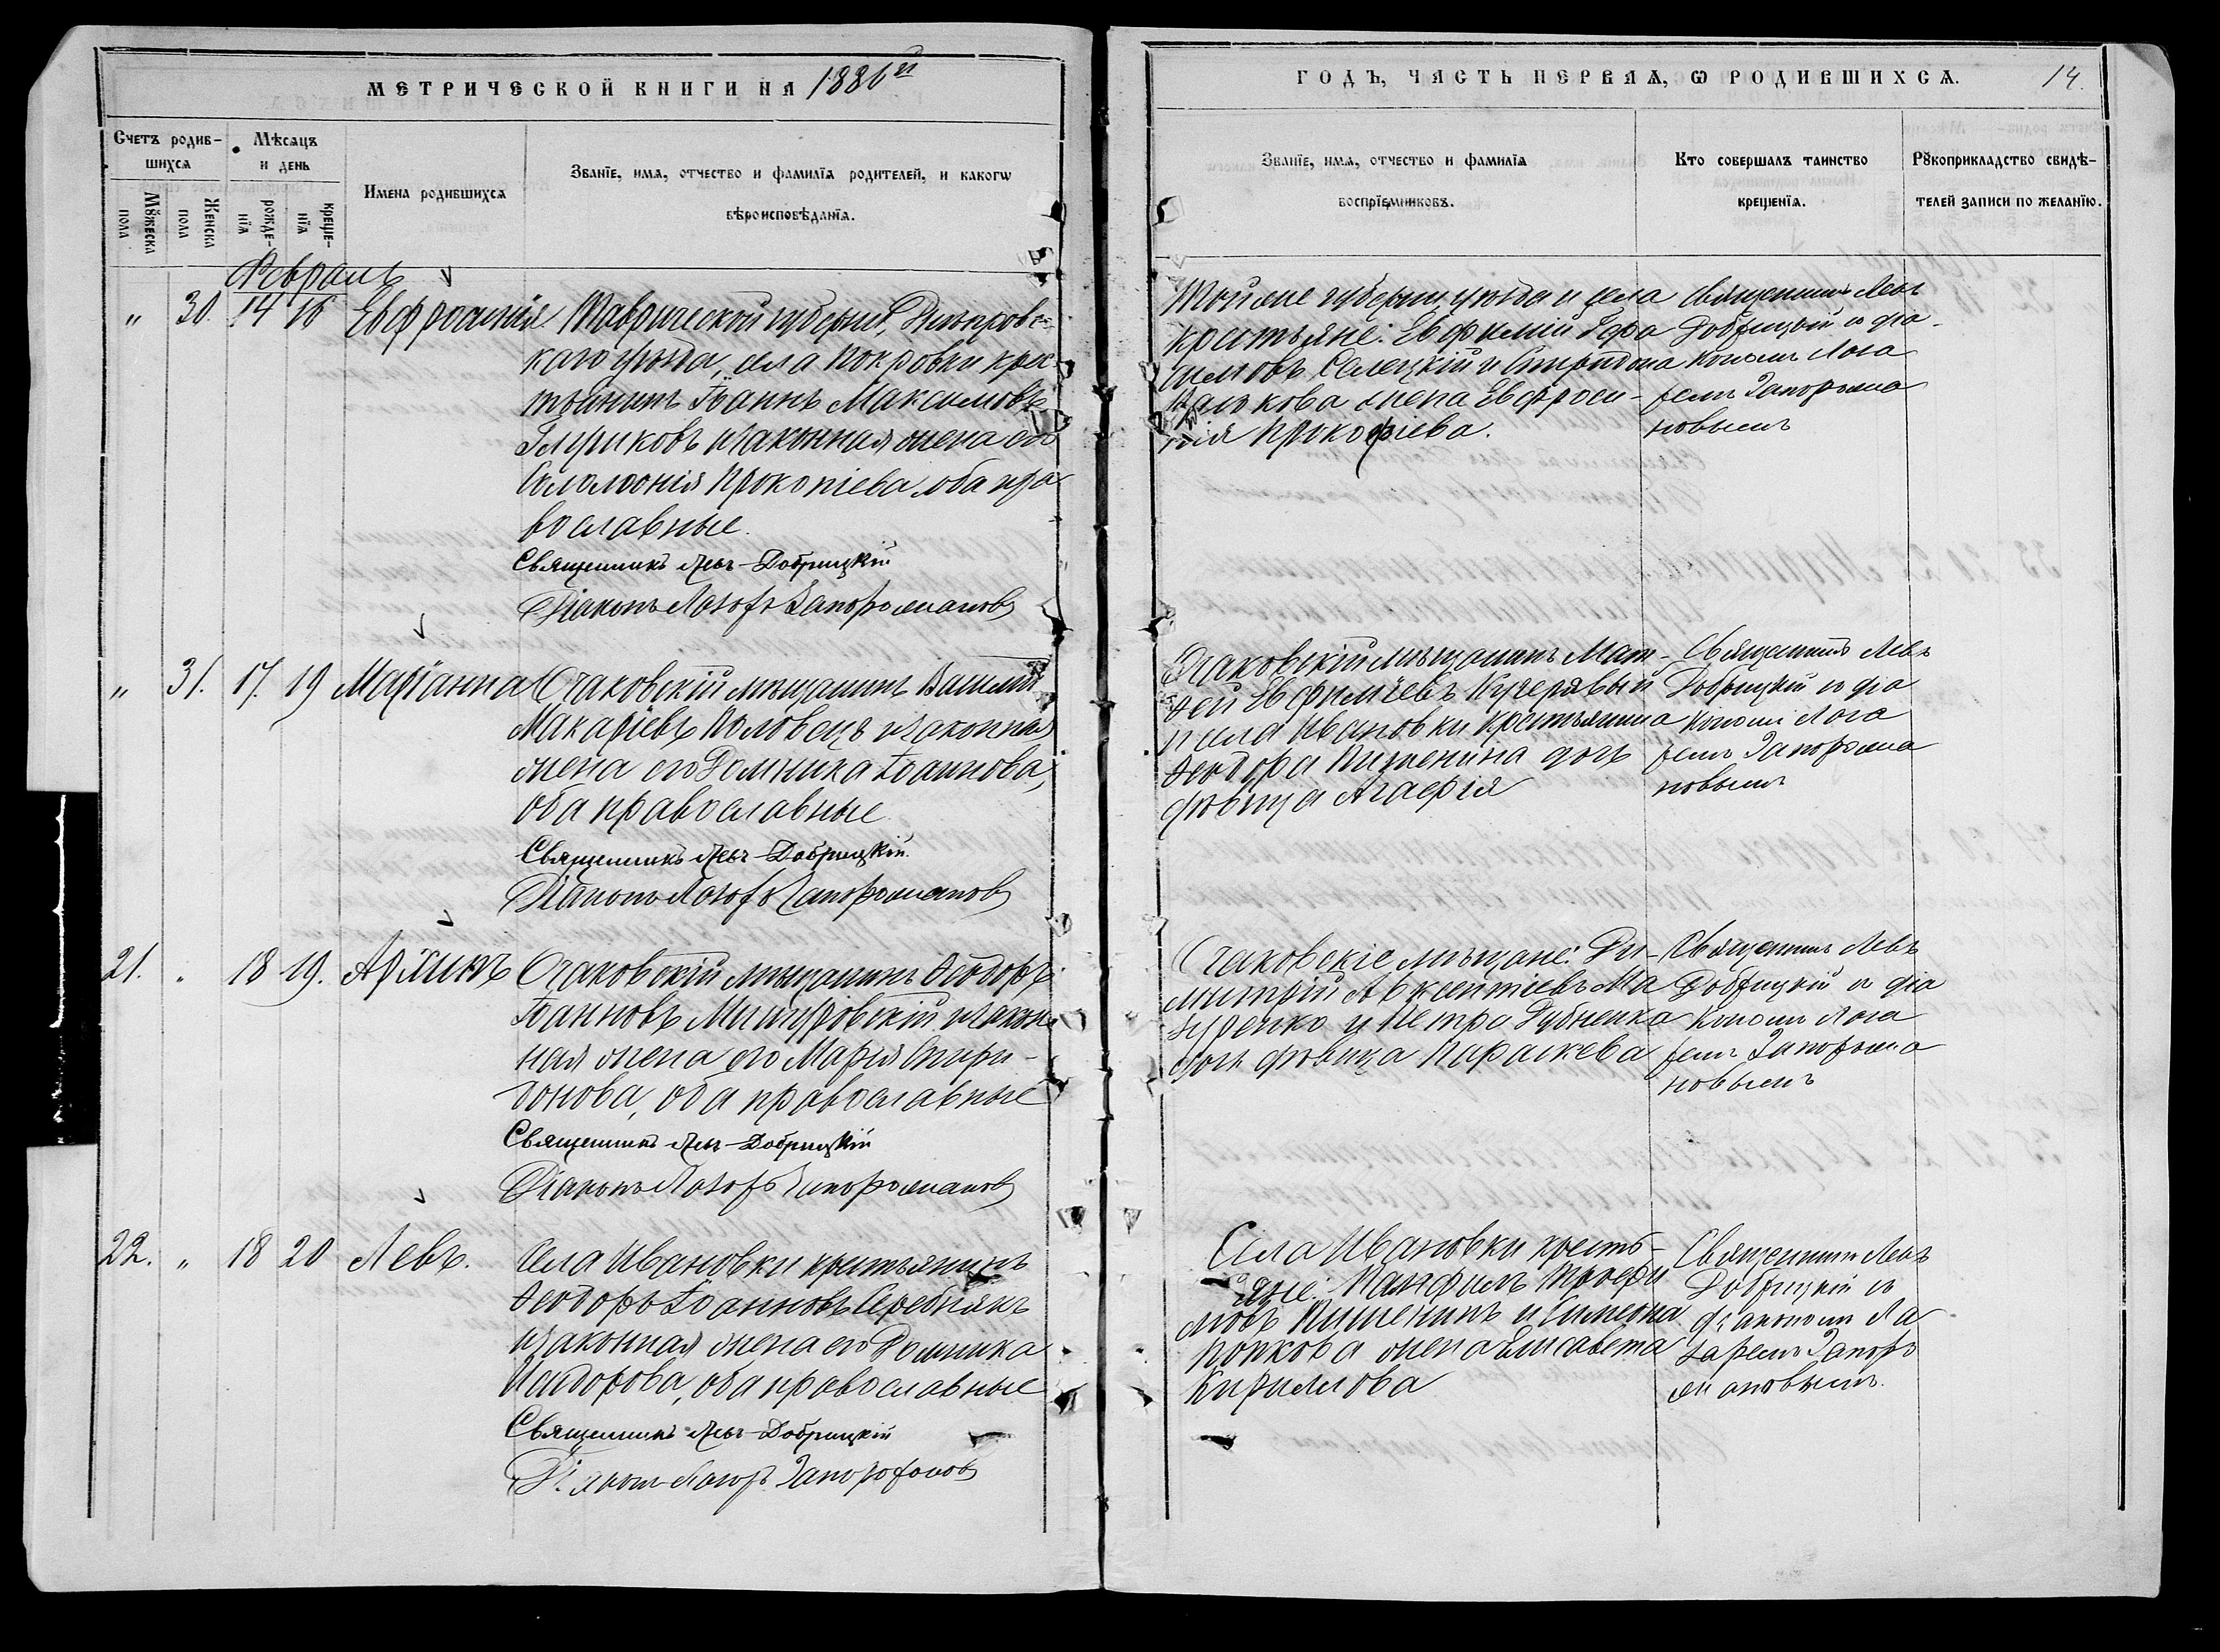 МЕТРИЧЕСКОЙ КНИГИ НА 1886й
ГОДЪ, ЧАСТЬ ПЕРВАѦ, Ѡ РОДИВШИХСѦ. 14.
Счетъ родившихсѧ
Мꙋжеска пола
Женска пола
Мѣсѧцъ и день
рожденїѧ
крещенїѧ
Имена родившихсѧ
Званїе, имѧ, отчество и фамилїѧ родителей, и какогѡ вѣроисповѣданїѧ.
Званїе, имѧ, отчество и фамилїѧ воспрїемниковъ.
Кто совершалъ таинство крещенїѧ.
Рꙋкоприкладство свидѣтелей записи по желанїю.
Февраль
" 30. 14 16 Евфросинія
Таврической губерніи, Днѣпровс-
каго уѣзда, села Покровки крес-
тьянинъ Іоаннъ Максимовъ
и законная жена его
Соломонія Прокопіева, оба пра
вославные.
Священникъ Левъ Добрицкій
Діаконъ Лазарь Запорожановъ
Той же губерніи уѣзда и села
крестьяне: Евфимій Гера
симовъ Селецкій и Спиридона
жена Евфроси-
нія Прокофіева.
Священникъ Левъ
Добрицкій и діа
кономъ Лаза
ремъ Запорожа
новымъ
" 31. 17. 19 Маріанна
Очаковскій мѣщанинъ Василій
Макаріевъ Половецъ и законная
жена его Домника Іоаннова,
оба православные
Священникъ Левъ Добрицкій.
Діаконъ Лазарь Запорожановъ
Очаковскій мѣщанинъ Мат-
ѳей Евфиміевъ Кучерявый
и села Ивановки крестьянина
Ѳеодора Пишенина дочь
дѣвица Агафія
Священникъ Левъ
Добрицкій и діа
кономъ Лаза
ремъ Запорожа
новымъ
21. " 18 19. Архипъ
Очаковскій мѣщанинъ Ѳеодоръ
Іоанновъ и закон
ная жена его Марія Спири-
донова, оба православные
Священникъ Левъ Добрицкій
Діаконъ Лазарь Запорожановъ
Очаковскіе мѣщане: Ди-
митрій Авксентіевъ Ма
зуренко и Петра
дочь дѣвица Параскева
Священникъ Левъ
Добрицкій и діа
кономъ Лаза
ремъ Запорожа
новымъ
22. " 18 20 Левъ.
Села Ивановки крестьянинъ
Ѳеодоръ Іоанновъ Серебнякъ
и законная жена его Домника
Исидорова, оба православные
Священникъ Левъ Добрицкій
Діаконъ Лазарь Запорожановъ
Села Ивановки кресть-
яне: Панфилъ Трофи
мовъ Пишенинъ и Симеона
Попкова жена Елисавета
Кириллова
Священникъ Левъ
Добрицкій и
діакономъ Ла
заремъ Запоро
жановымъ.